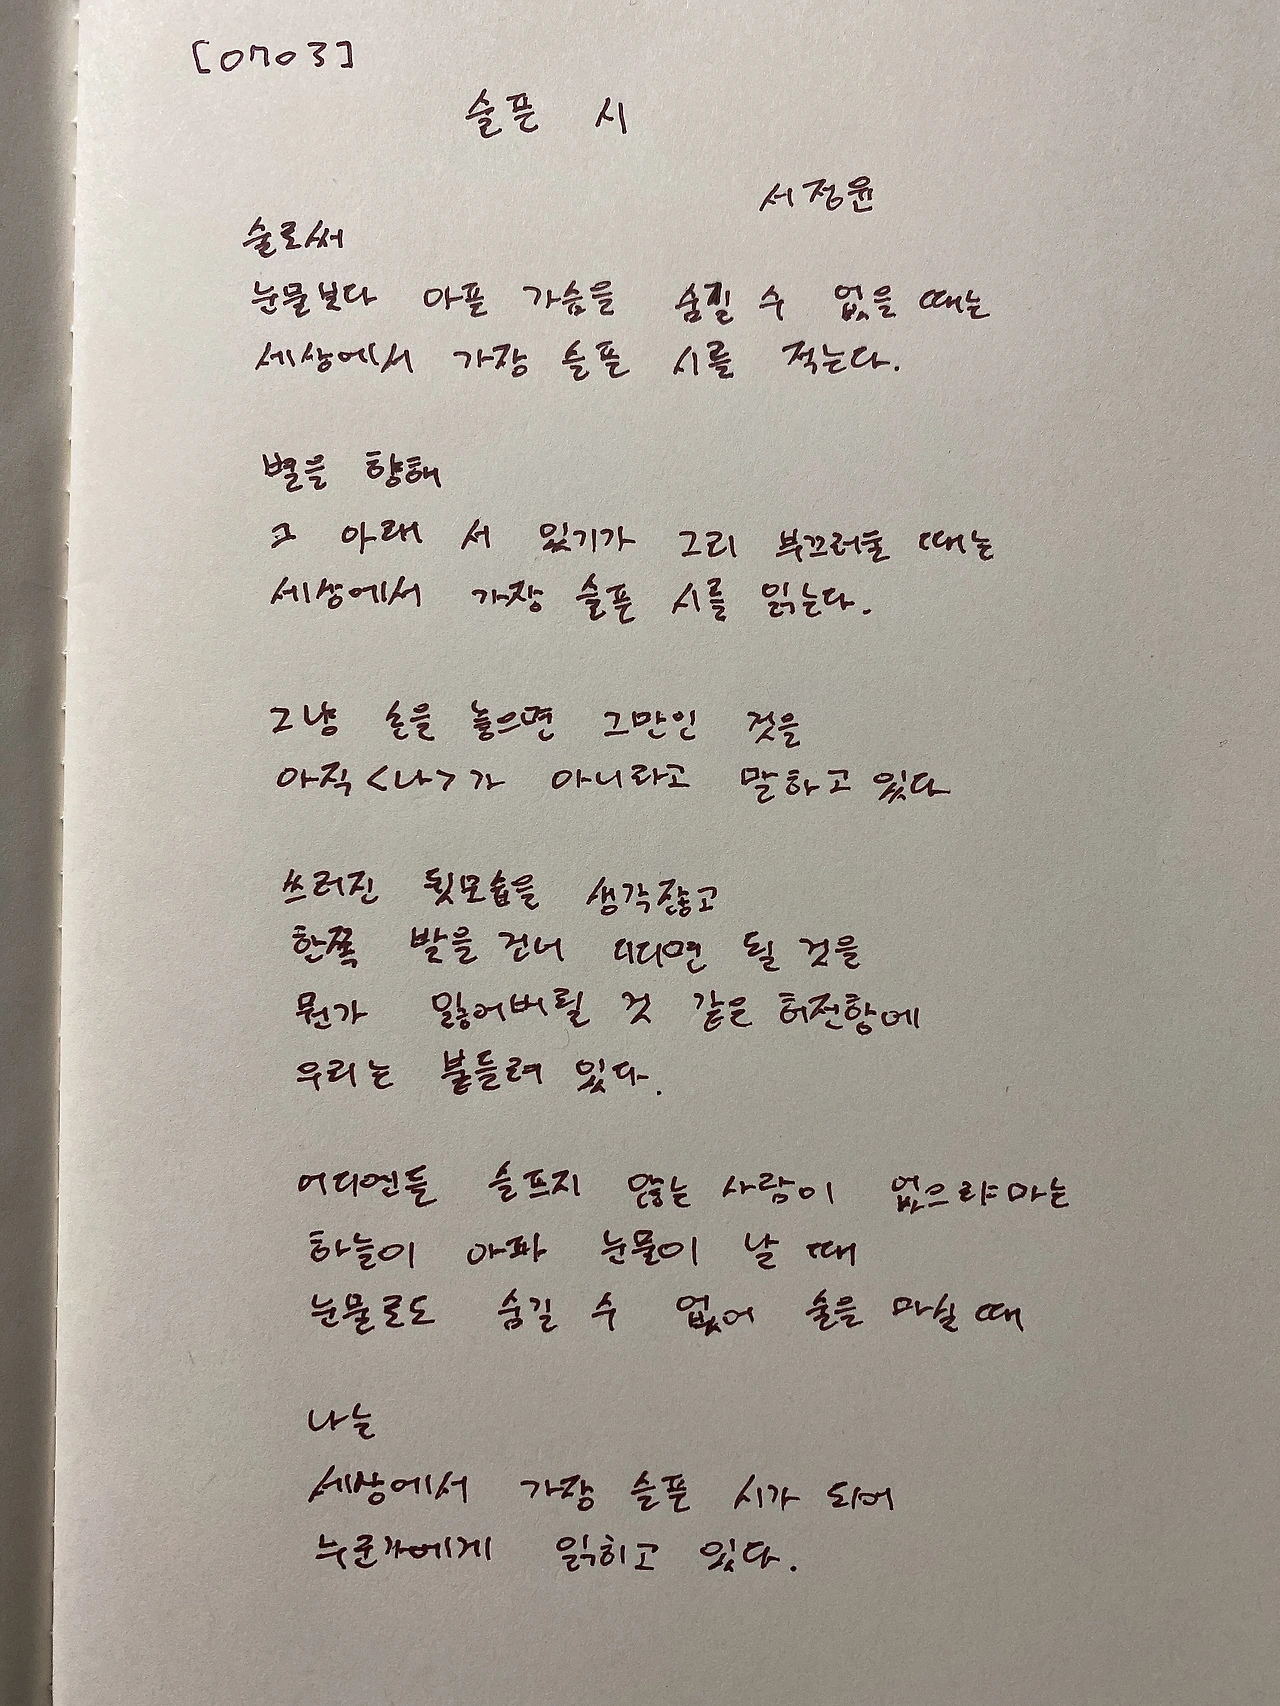 [0703]
슬픈 시
서정윤
술로써
눈물보다 아픈 가슴을 숨길 수 없을 때는
세상에서 가장 슬픈 시를 적는다.
별을 향해
그 아래 서 있기가 그리 부끄러울 때는
세상에서 가장 슬픈 시를 읽는다.
그냥 손을 놓으면 그만인 것을
아직 <나>가 아니라고 말하고 있다
쓰러진 뒷모습을 생각잖고
한쪽 발을 건너 디디면 될 것을
뭔가 잃어버릴 것 같은 허전함에
우리는 붙들려 있다.
어디엔들 슬프지 않는 사람이 없으랴마는
하늘이 아파 눈물이 날 때
눈물로도 숨길 수 없어 술을 마실 때
나는
세상에서 가장 슬픈 시가 되어
누군가에게 읽히고 있다.